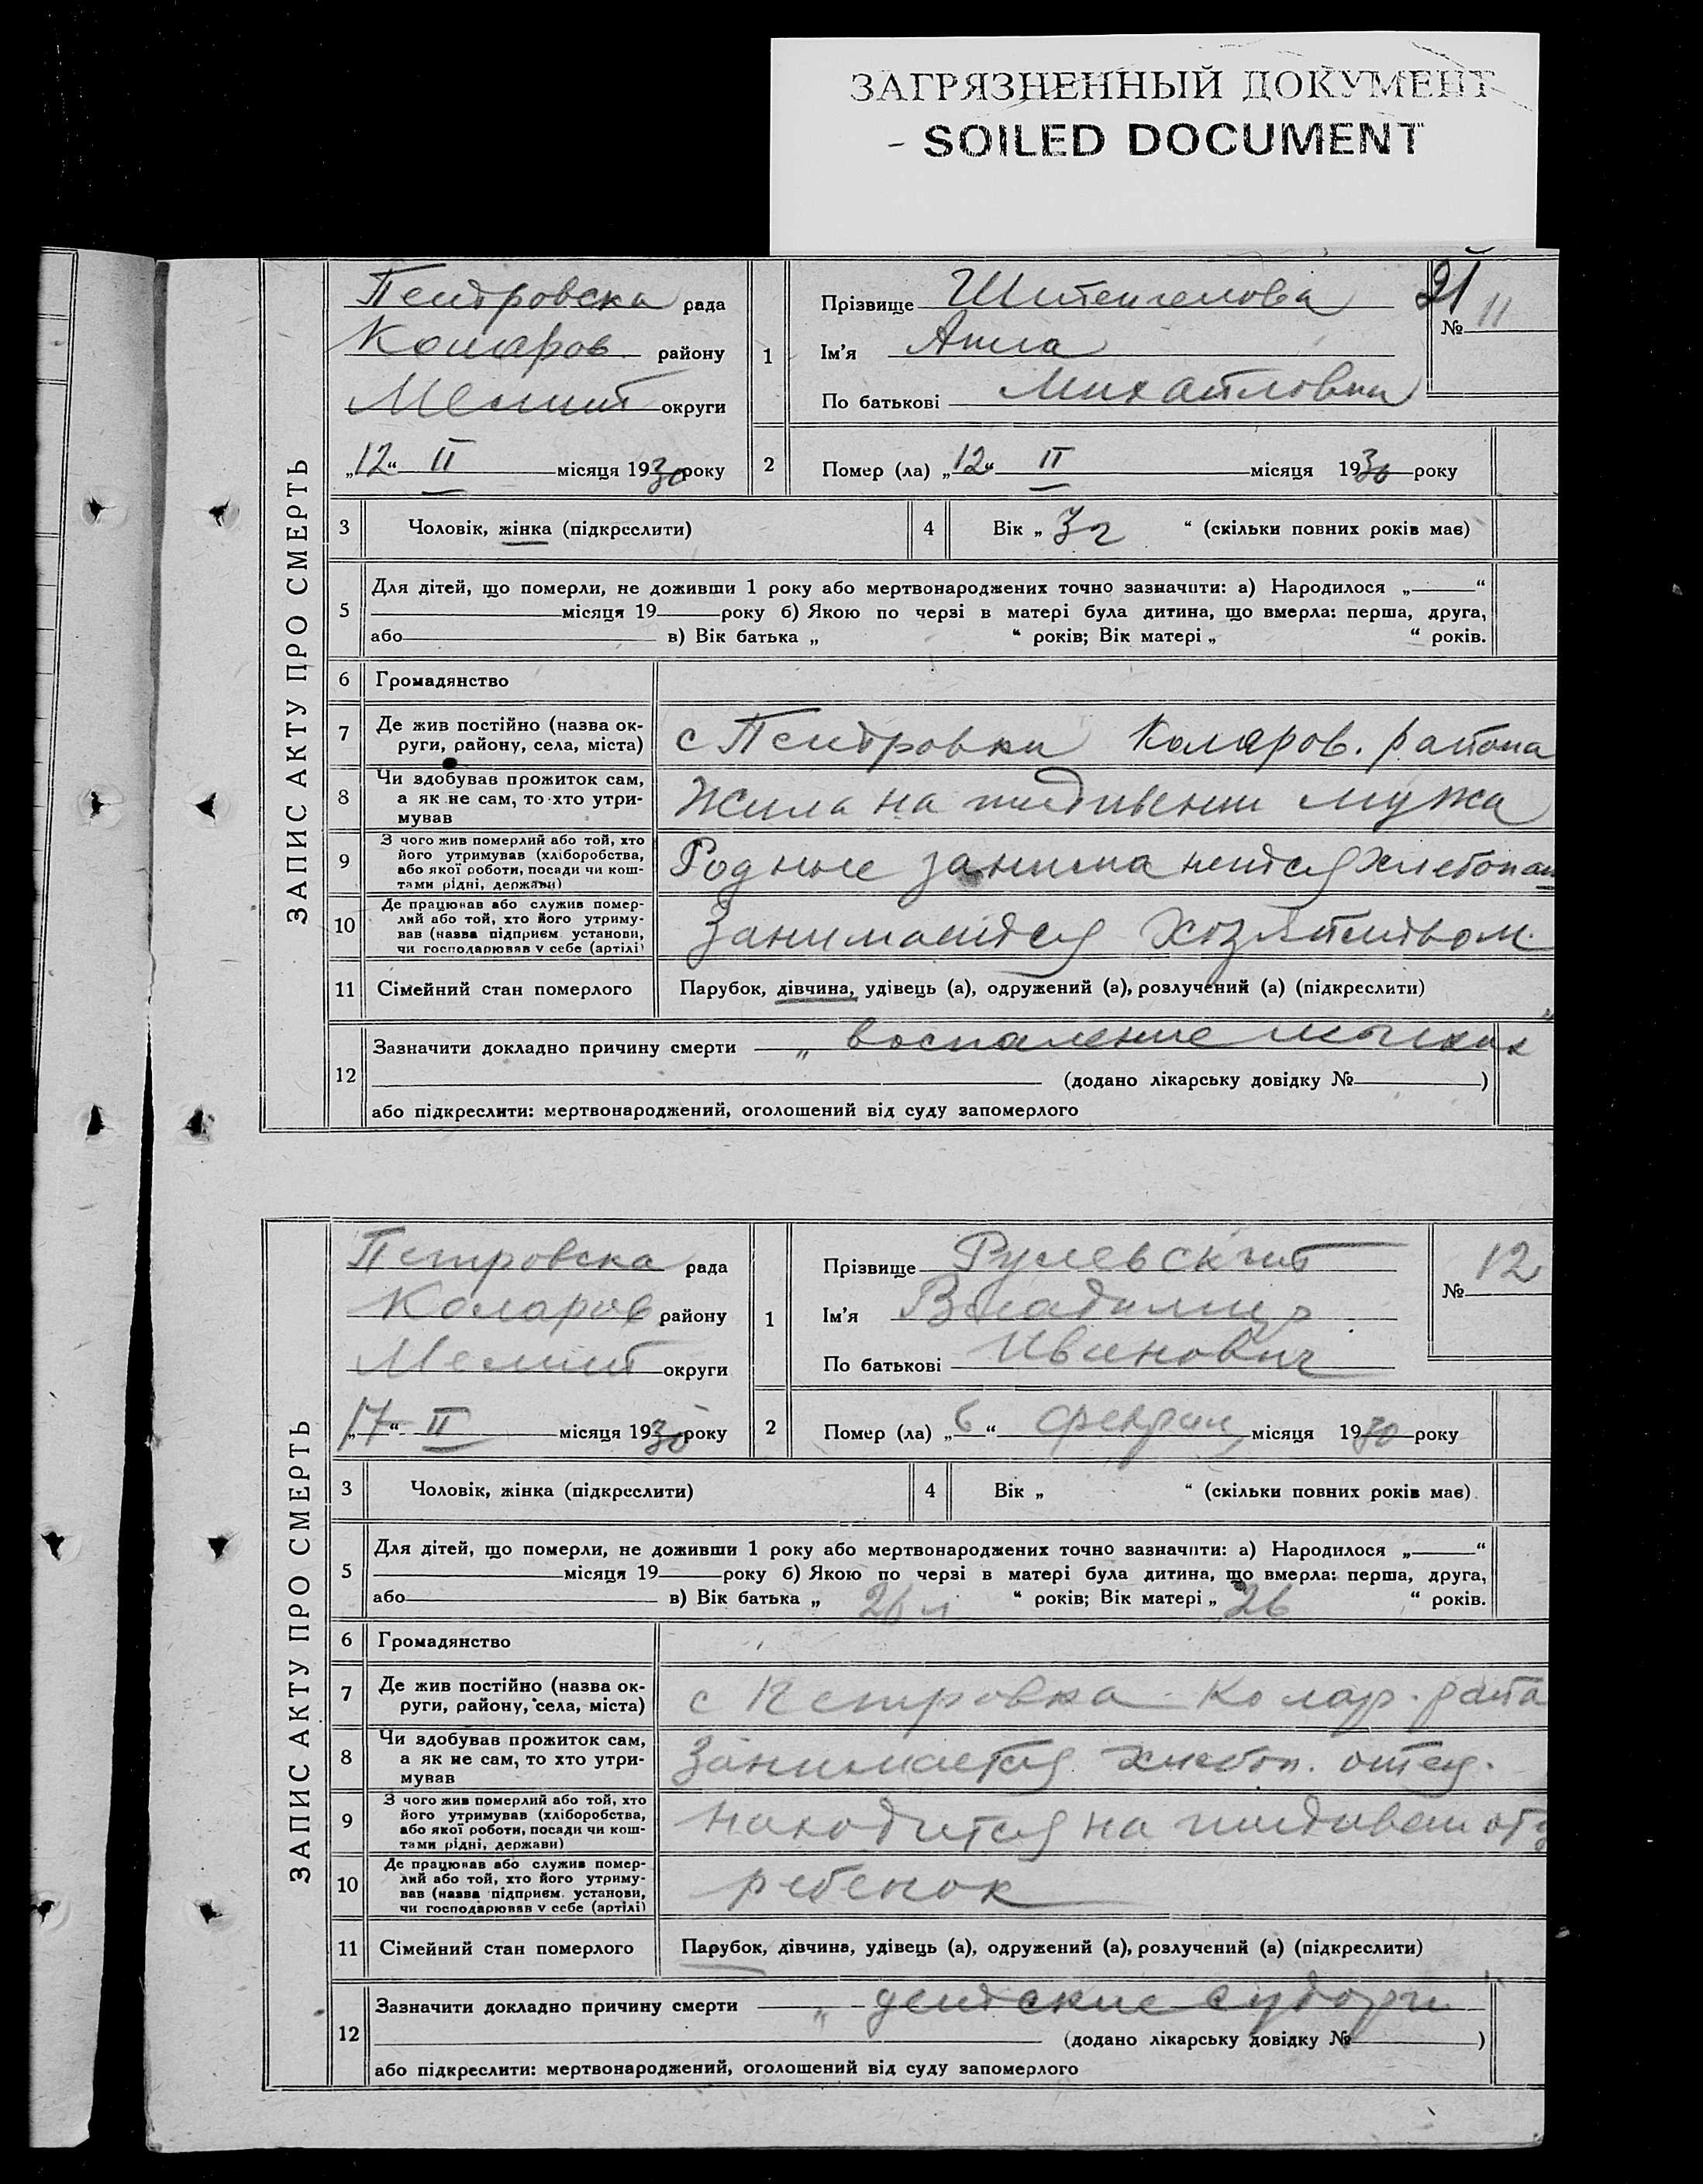 ЗАГРЯЗНЕННЫЙ ДОКУМЕНТ
- SOILED DOCUMENT
ЗАПИС АКТУ ПРО СМЕРТЬ
Петровска рада
Коларов району
Мелит округи
„12“ II місяця 1930 року
21
№ 11
1
Прізвище
Ім’я Анна
По батькові Михайловна
2 Помер (ла) „12“ II місяця 1930 року
3 Чоловік, жінка (підкреслити)
4 Вік „ 3 г “ (скільки повних років має)
5 Для дітей, що померли, не доживши 1 року або мертвонароджених точно зазначити: а) Народилося „ “
місяця 19 року б) Якою по черзі в матері була дитина, що вмерла: перша, друга,
або в) Вік батька „ “ років; Вік матері „ “ років.
6 Громадянство
7 Де жив постійно (назва ок-
руги, району, села, міста)
с Петровки Коляров. района
8 Чи здобував прожиток сам,
а як не сам, то хто утри-
мував
Жила на иждивении мужа
9 З чого жив померлий або той, хто
його утримував (хліборобства,
або якої роботи, посади чи кош-
тами рідні, держави)
Родные
10 Де працював або служив помер-
лий або той, хто його утриму-
вав (назва підприєм. установи,
чи господарював у себе (артілі)
Занимается
11 Сімейний стан померлого
Парубок, дівчина, удівець (а), одружений (а), розлучений (а) (підкреслити)
12 Зазначити докладно причину смерти „ воспаление
(додано лікарську довідку № )
або підкреслити: мертвонароджений, оголошений від суду запомерлого
ЗАПИС АКТУ ПРО СМЕРТЬ
Петровска рада
Коларов району
Мелит округи
„17“ II місяця 1930 року
№ 12
1
Прізвище
Ім’я Владимир
По батькові Иванович
2 Помер (ла) „6“ февраля місяця 1930 року
3 Чоловік, жінка (підкреслити)
4 Вік „ “ (скільки повних років має)
5 Для дітей, що померли, не доживши 1 року або мертвонароджених точно зазначити: а) Народилося „ “
місяця 19 року б) Якою по черзі в матері була дитина, що вмерла: перша, друга,
або в) Вік батька „ 26 л “ років; Вік матері „ 26 “ років.
6 Громадянство
7 Де жив постійно (назва ок-
руги, району, села, міста)
с Петровка Колар. райа
8 Чи здобував прожиток сам,
а як не сам, то хто утри-
мував
Занимается хлебоп. отец.
9 З чого жив померлий або той, хто
його утримував (хліборобства,
або якої роботи, посади чи кош-
тами рідні, держави)
находится на
10 Де працював або служив помер-
лий або той, хто його утриму-
вав (назва підприєм. установи,
чи господарював у себе (артілі)
ребенок
11 Сімейний стан померлого
Парубок, дівчина, удівець (а), одружений (а), розлучений (а) (підкреслити)
12 Зазначити докладно причину смерти „ детские судорги
(додано лікарську довідку № )
або підкреслити: мертвонароджений, оголошений від суду запомерлого